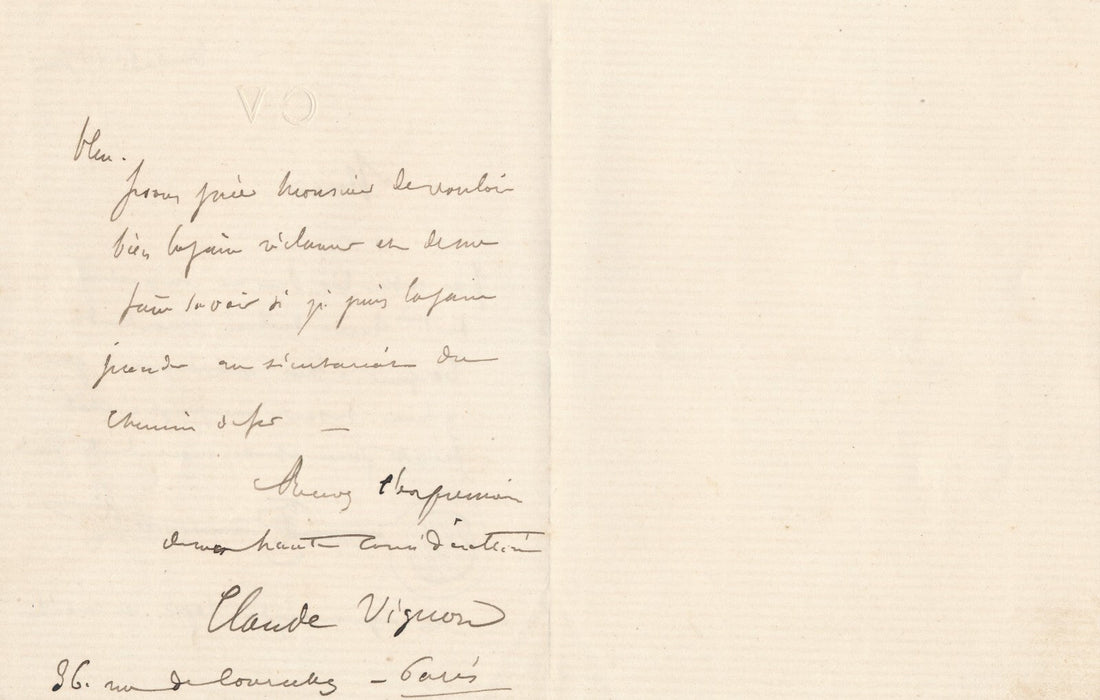 bleu.
Je vous prie Monsieur de vouloir
bien la faire réclamer et de me
faire savoir si je puis la faire
prendre au secrétariat du
chemin de fer —
Recevez l'expression
de ma haute considération
Claude Vignon
36. rue de Courcelles – Paris